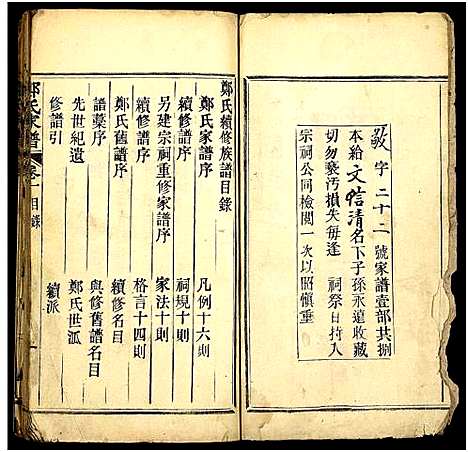 敬字二十二號家譜壹部共捌
本給文信清名下子孫永遠收藏
切勿褻汚損失每逢　祠祭日持入
宗祠公同檢閱一次以昭慎重
鄭氏續修族譜目錄
鄭氏家譜序　凡例十六則
續修譜序　祠規十則
另建宗祠重修家譜序　家法十則
續修譜序　格言十四則
鄭氏舊譜序　續修名目
譜藁序　與修舊譜名目
先世紀遺　鄭氏世派
修譜引　續派
鄭氏家譜　卷一　目錄